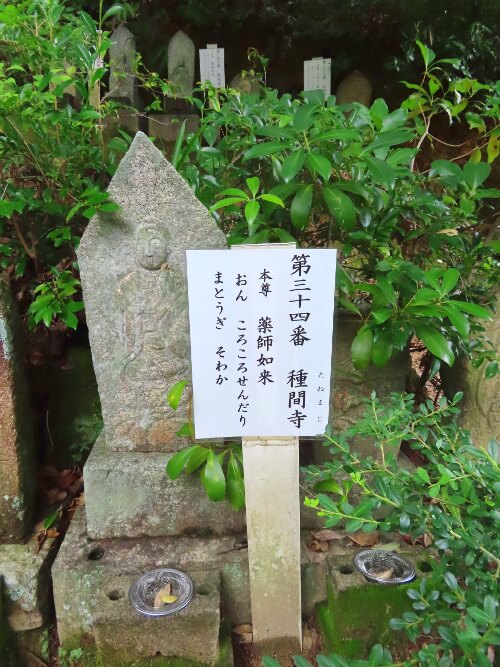 第三十四番 種間寺
たねまじ
本尊 薬師如来
おん ころころせんだり
まとうぎ そわか